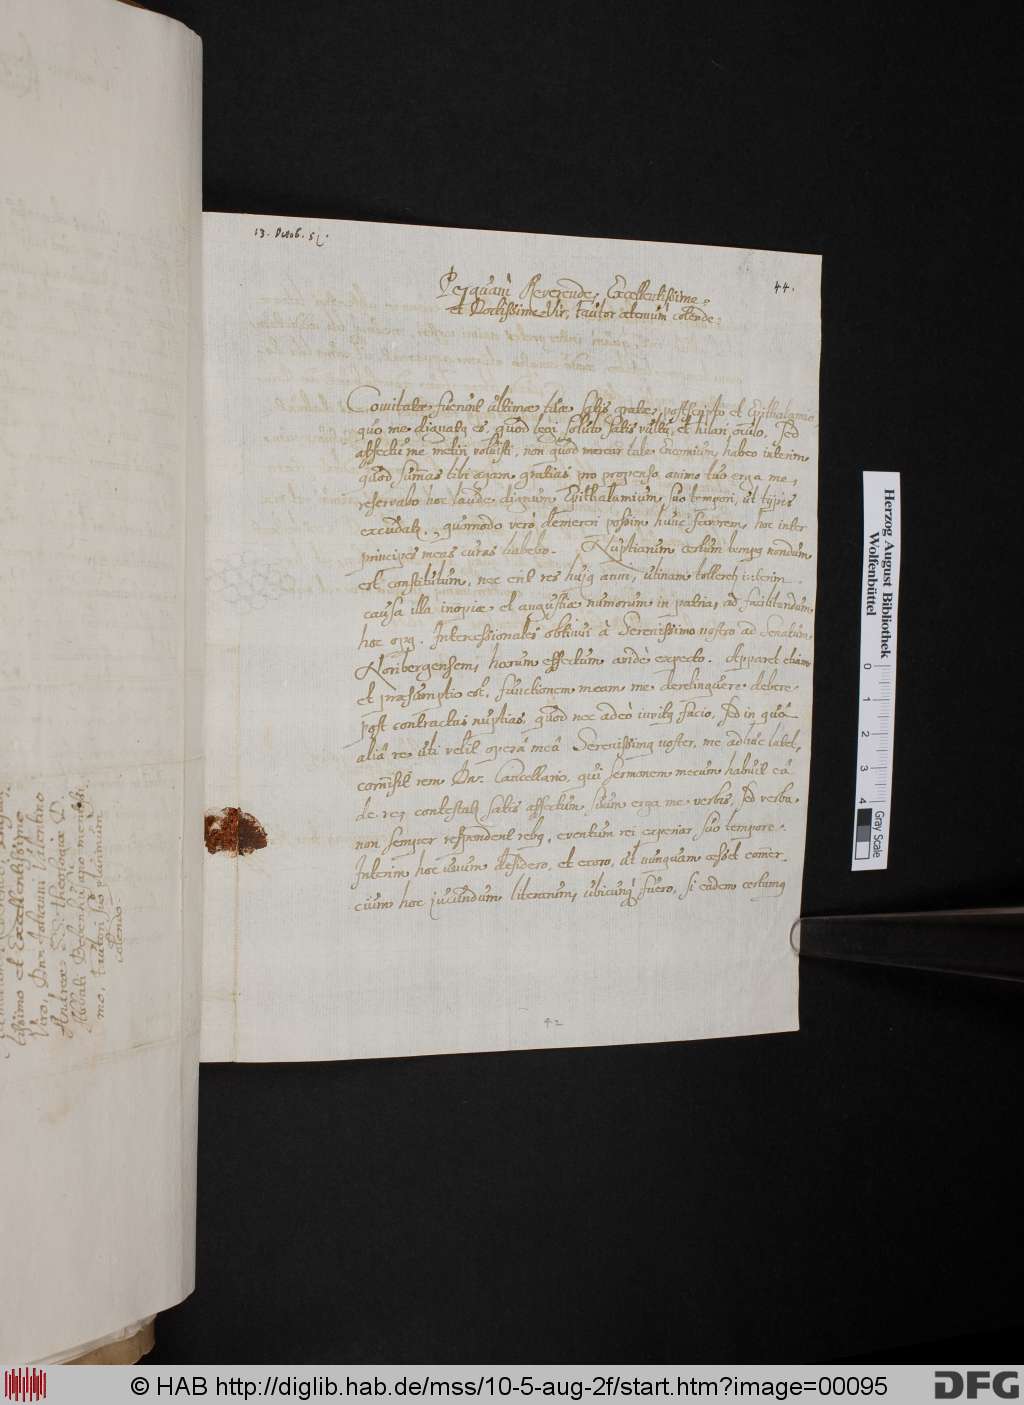 13. Octob. 5
44.
Perquam Reverende, Excellentissime,
et Doctissime Vir, fautor æternum colende.
Comitatæ fuerunt ultimæ tuæ satis gratæ, postscripto et Epithalamio,
quo me dignatq es, quod legi soluto satis vultu, et hilari oculo. Sed
affectu me metiri voluisti, non quod merear tale Encomium, habeo interim
quod summas tibi agam gratias pro propenso animo tuo erga me,
reservabo hoc laude dignum Epithalamium suo tempori, ut typis
excudatq, quomodo verò demereri possim hunc favorem, hoc inter
principes meas curas habebo. Nuptiarum certum tempq nondum
est constitutum, nec erit res hujq anni, utinam tolleretq interim
causa illa inopiæ et angustiæ numorum in patria, ad facilitandum
hoc opq. Intercessionales obtinui à Serenissimo nostro ad Senatum
Noribergensem, harum effectum avidè expecto. Apparet etiam
et præsumptio est, functionem meam me derelinquere debere
post contractas nuptias, quod nec adeò invitq facio, sed in quâ
aliâ re uti velit operâ meâ Serenissimq noster, me adhuc latet,
commisit rem Dn. Cancellario, qui sermonem mecum habuit eâ
de re, contestatq satis affectum suum erga me verbis, sed verba
non semper respondent rebq, eventum rei experiar suo tempore.
Interim hoc unum desidero, et exoro, ut nunquam cesset commer-
cium hoc jucundum literarum, ubicunq fuero, si eadem certumq
42
tissimo et Excellentissimo
Viro, Dno Johanni Valentino
Andreæ S.S. Theologiæ D
mo, fautori suo plurimum
colendo
Herzog August Bibliothek
Wolfenbüttel
0 1 2 3 4
Gray Scale
© HAB http://diglib.hab.de/mss/10-5-aug-2f/start.htm?image=00095
DFG